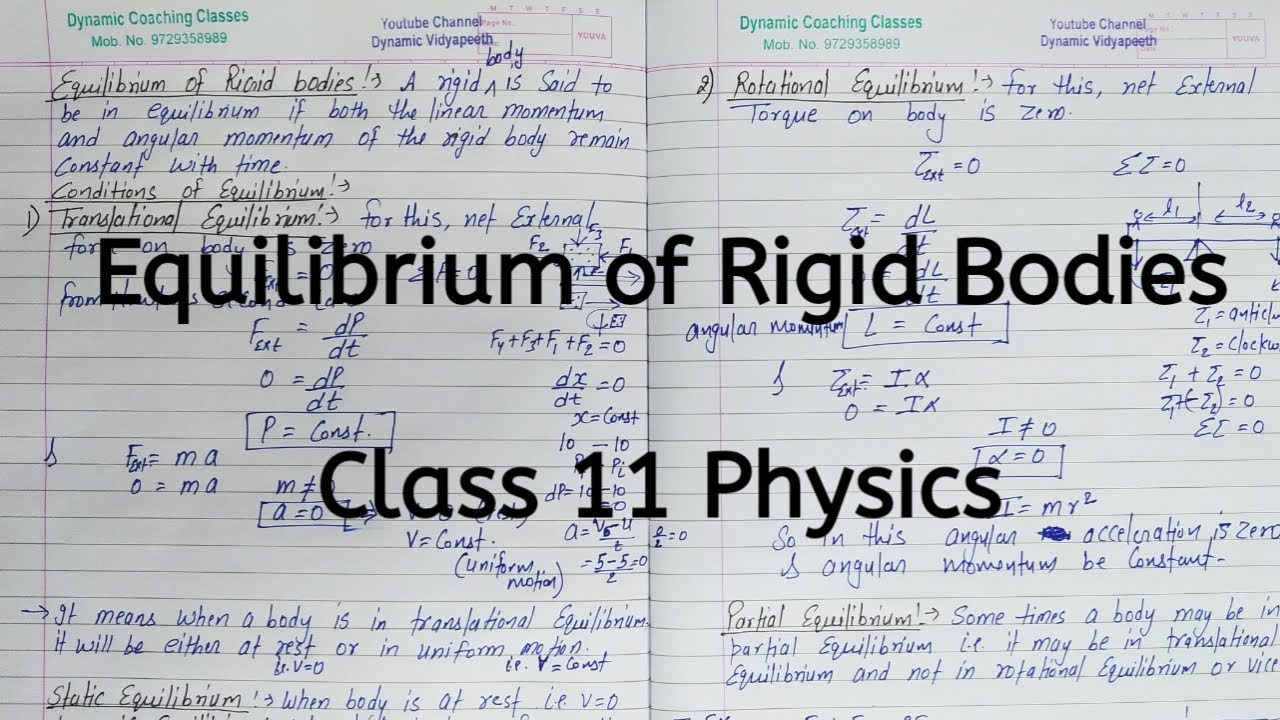 Dynamic Coaching Classes
Mob. No. 9729358989
Youtube Channel
Dynamic Vidyapeeth
M T W T F S S
Page No.:
YOUVA
body
Equilibrium of Rigid bodies!→ A rigid ^ is Said to
be in equilibrium if both the linear momentum
and angular momentum of the rigid body remain
Constant with time.
Conditions of Equilibrium!→
1) Translational Equilibrium!→ for this, net External
force on body is zero
F₃
F₂
F₁
F_Ext = dP/dt
F₄+F₃+F₁+F₂=0
0 = dP/dt
dx/dt = 0
x=Const
P = Const.
10 – 10
F_Ext = m a
0 = m a
dP=10-10
=0
a=0
V=Const.
(uniform motion)
= 5-5/2 = 0
→ It means when a body is in translational Equilibrium
it will be either at rest or in uniform motion.
i.e. V=0
i.e. V=Const
Static Equilibrium!→ When body is at rest i.e V=0
Dynamic Coaching Classes
Mob. No. 9729358989
Youtube Channel
Dynamic Vidyapeeth
M T W T F S S
YOUVA
2) Rotational Equilibrium!→ for this, net External
Torque on body is zero.
τ_Ext = 0
Στ=0
τ_Ext = dL/dt
l₁
l₂
dL/dt
angular momentum L = Const
τ₁=anticl
τ₂=clockw
τ_Ext = Iα
0 = Iα
τ₁ + τ₂ = 0
τ₁+(-τ₂)=0
Στ=0
I≠0
α=0
I=mr²
So in this angular acceleration is zero
& angular momentum be Constant-
Partial Equilibrium!→ Some times a body may be in
partial Equilibrium i.e. it may be in translational
Equilibrium and not in rotational Equilibrium or vice
Equilibrium of Rigid Bodies
Class 11 Physics